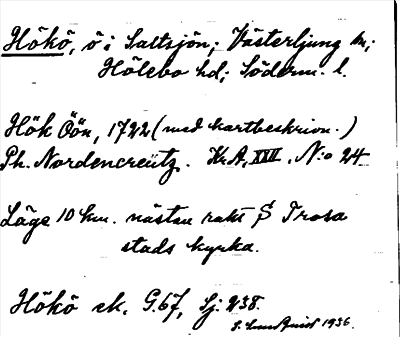 Hökö, ö i Saltsjön; Västerljung sn;
Hölebo hd; Söderm. l.
Hök Öön, 1722 (med kartbeskrivn.)
Ph. Nordencreütz. Kr.A, XXII, N:o 24
Läge 10 km. nästan rakt S Trosa
stads kyrka.
Hökö ek. G.67, Sj: 238.
1936.